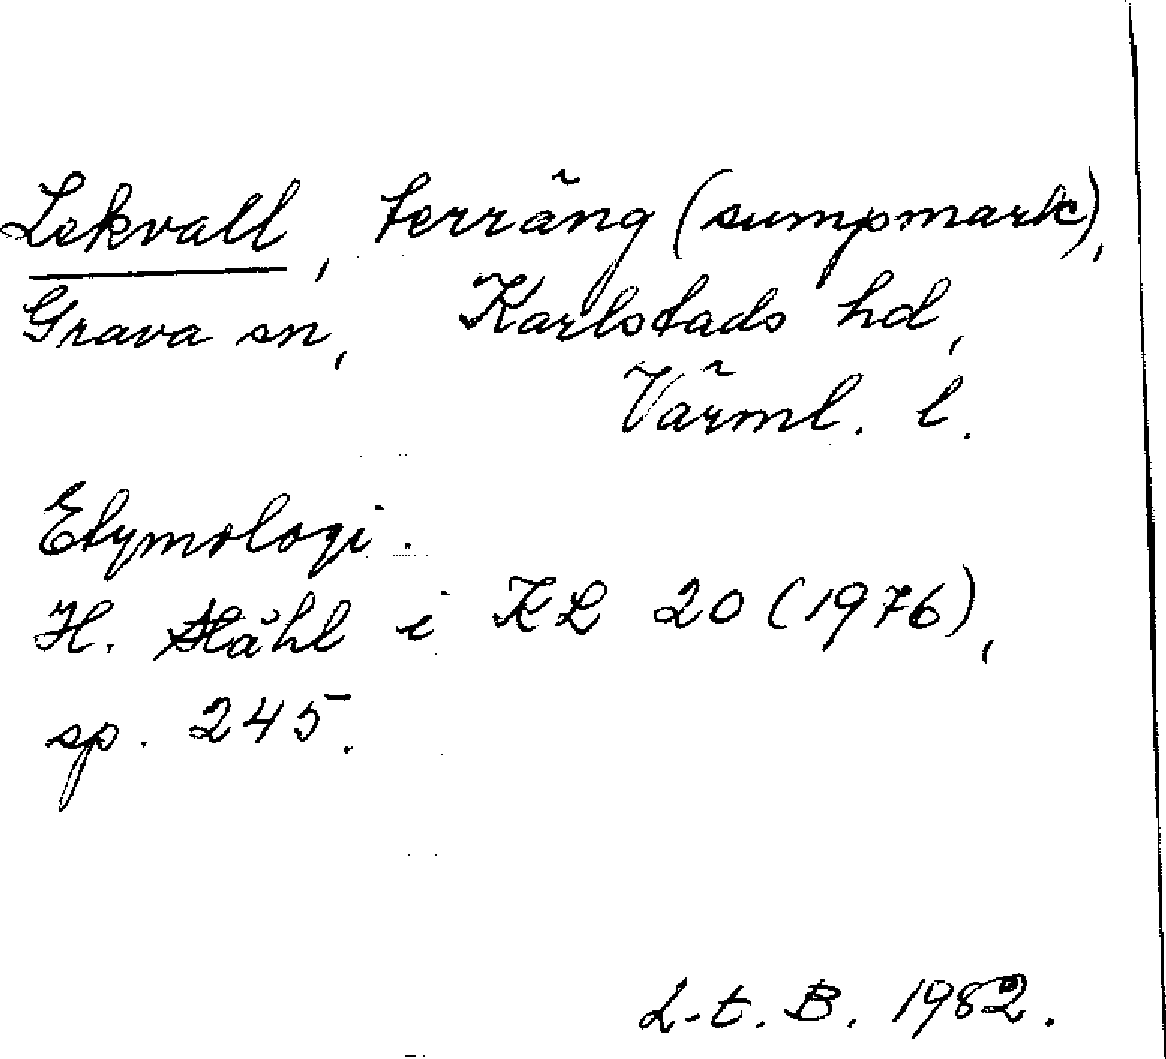 Lekvall, terräng (sumpmark),
Grava sn, Karlstads hd,
Värml. l.
Etymologi.
H. Ståhl i KL 20 (1976),
sp. 245.
L-t. B. 1982.